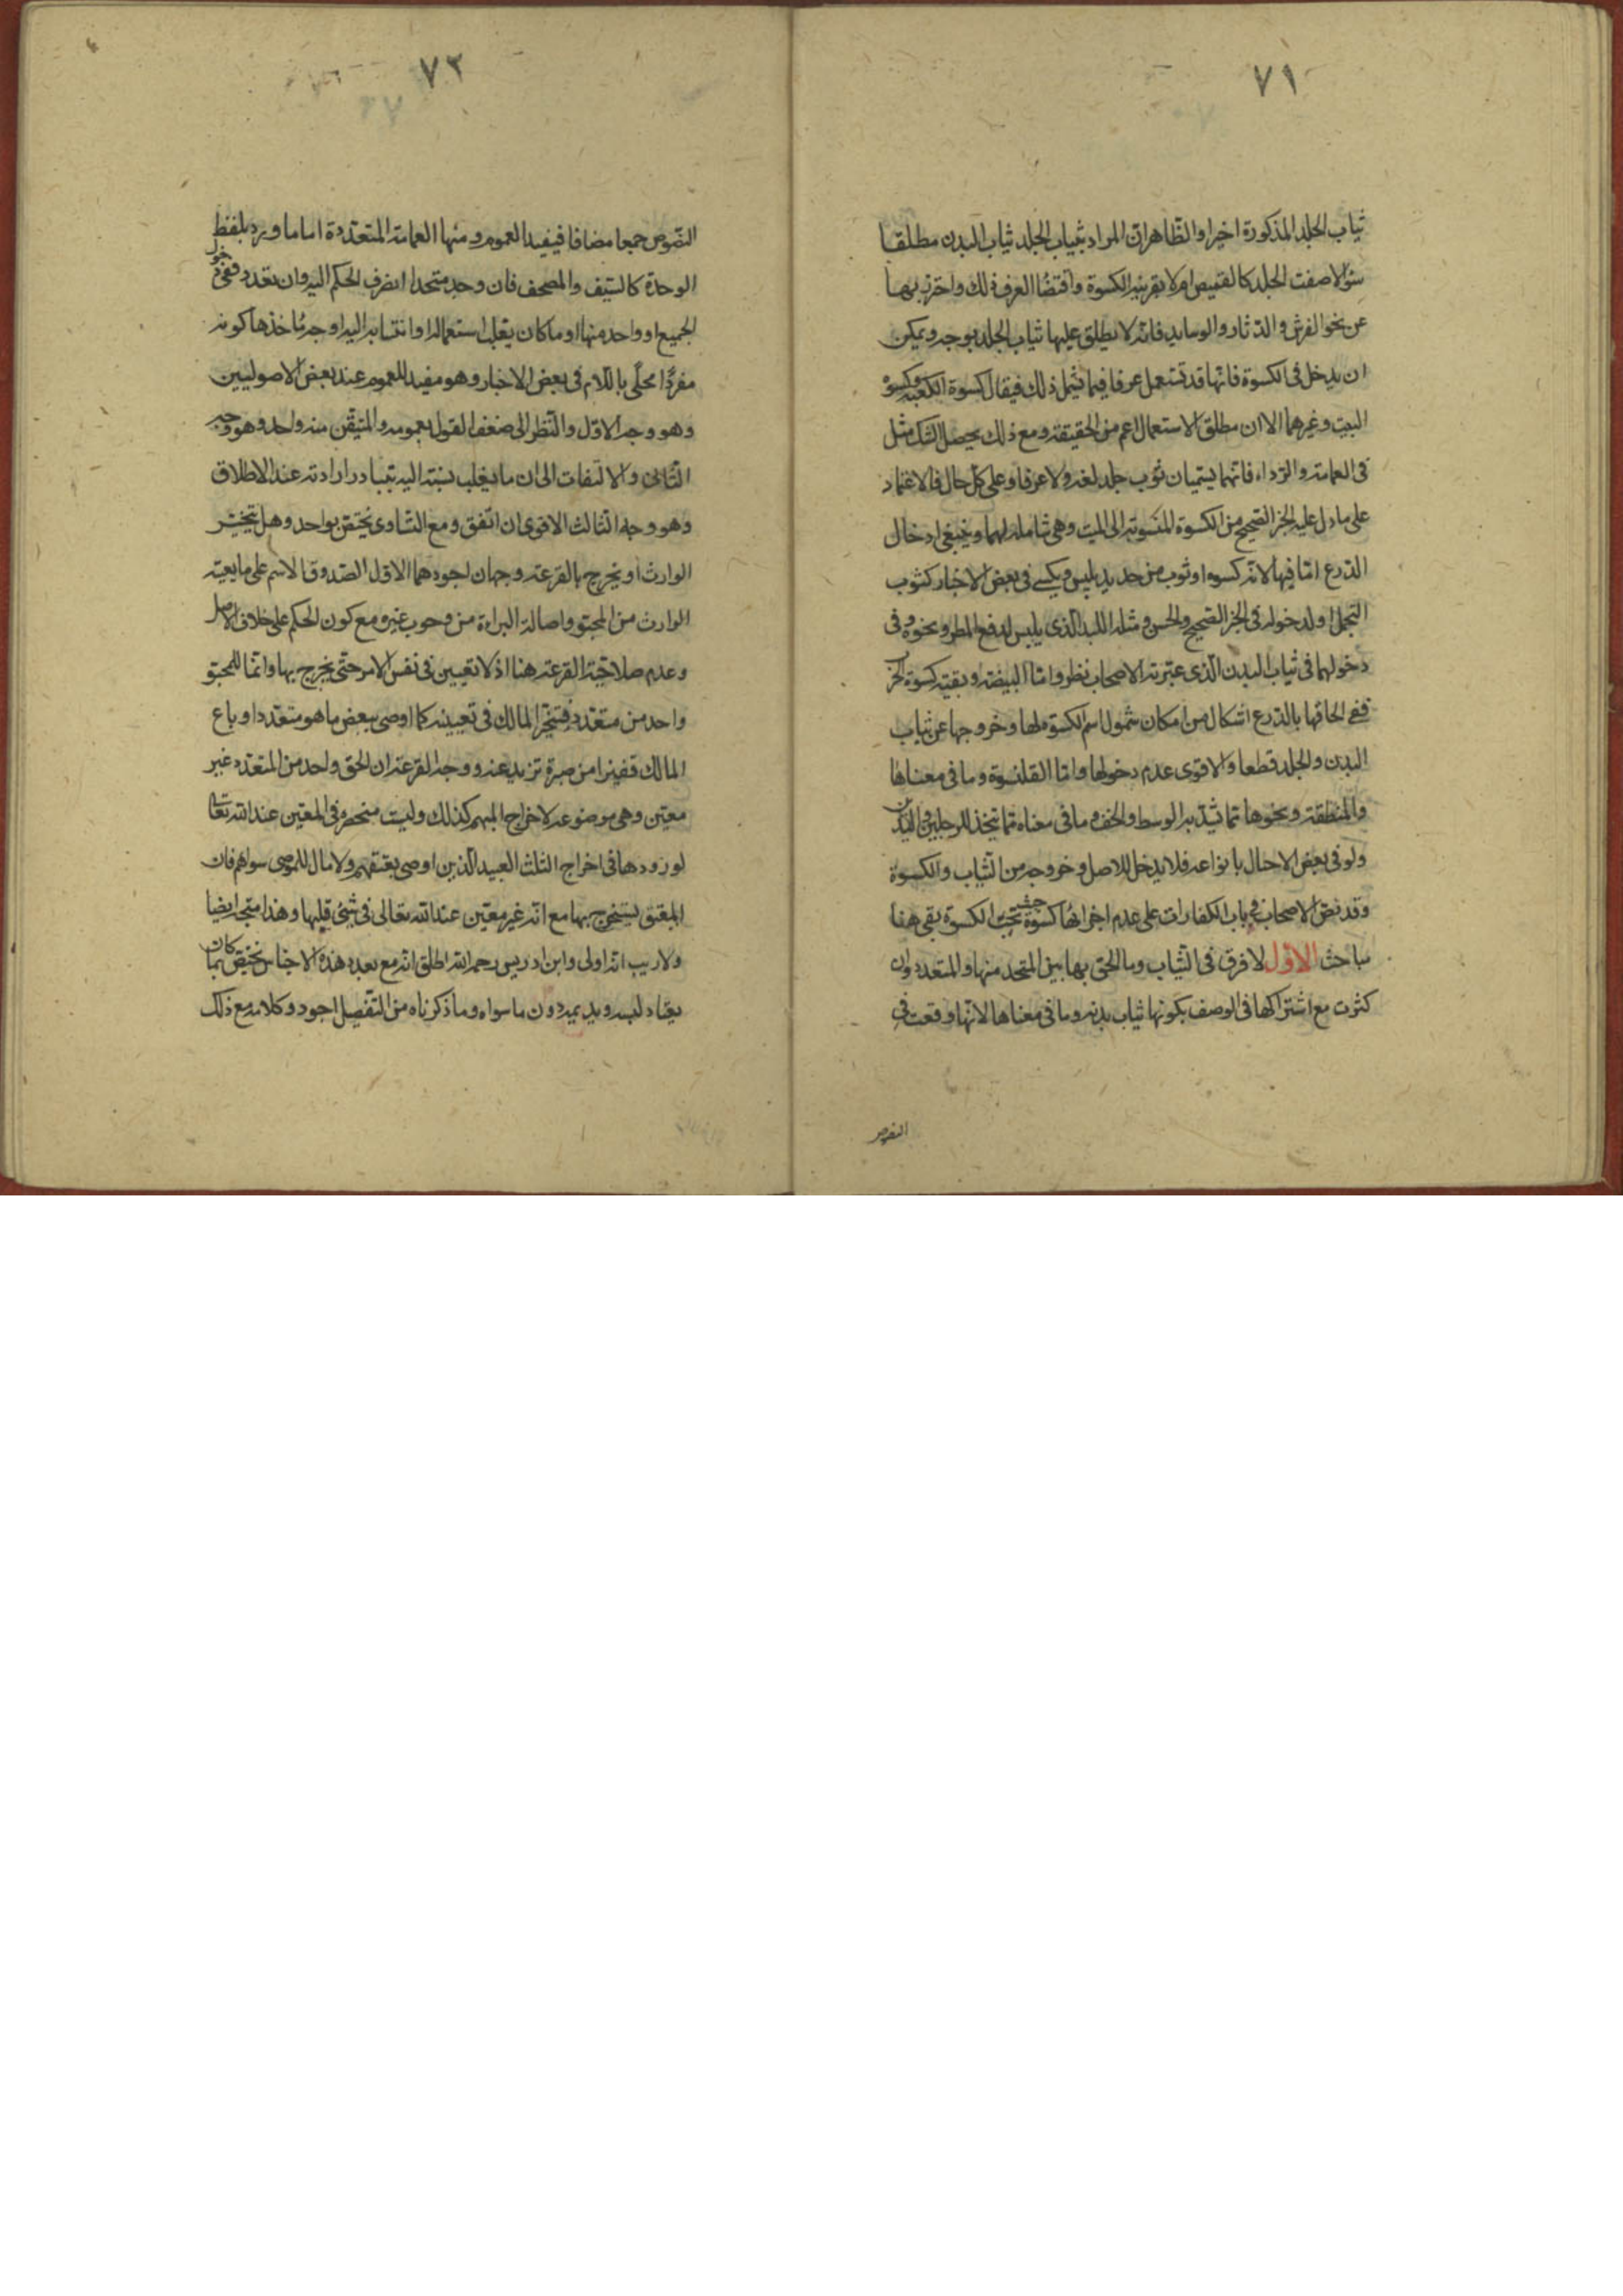 ٧١
ثياب الجلد المذكورة اخيرا والظاهر ان المراد بثياب الجلد ثياب البدن مطلقا
سواء لاصقت الجلد كالقميص ام لا بقرينة الكسوة واقتضاء العرف ذلك واحترز بها
عن نحو الفرش والدثار والوسايد فانه لا يطلق عليها ثياب الجلد بوجه ويمكن
ان يدخل في الكسوة فانها قد تستعمل عرفا فيما يشمل ذلك فيقال كسوة الكعبة وكسوة
البيت وغيرهما الا ان مطلق الاستعمال اعم من الحقيقة ومع ذلك يحصل الشك مثل
في العمامة والرداء فانهما يسميان ثوب جلد لغة ولا عرفا وعلى كل حال فالاعتماد
على ما دل عليه الخبر الصحيح من الكسوة المنسوبة الى الميت وهي شاملة لهما وينبغي ادخال
الدرع اما فيها لانه كسوة او ثوب من حديد يلبس ويكسى في بعض الاخبار كثوب
التجمل او لدخوله في الخبر الصحيح والحسن ومثله اللبد الذي يلبس لدفع المطر ونحوه وفي
دخولهما في ثياب البدن الذي عبر به الاصحاب نظر واما البيضة وبقية كسوة الحرب
ففي الحاقها بالدرع اشكال من امكان شمول اسم الكسوة لها وخروجها عن ثياب
البدن والجلد قطعا والاقوى عدم دخولها واما القلنسوة وما في معناها
والمنطقة ونحوها مما يشد به الوسط والخف وما في معناه مما يتخذ للرجلين واليدين
ولو في بعض الاحوال بانواعه فلا يدخل للاصل وخروجه من الثياب والكسوة
وقد نص الاصحاب في باب الكفارات على عدم اجزائها كسوة حيث تجب الكسوة بقي هنا
مباحث الاول لا فرق في الثياب وما الحق بها بين المتحد منها والمتعدد وان
كثرت مع اشتراكها في الوصف بكونها ثياب بدنه وما في معناها لانها وقعت في
النصوص
٧٢
النصوص جمعا مضافا فيفيد العموم ومنها العمامة المتعددة اما ما ورد بلفظ
الوحدة كالسيف والمصحف فان وجد متحدا انصرف الحكم اليه وان تعدد ففي دخول
الجميع او واحد منها او ما كان يغلب استعماله او انتسابه اليه اوجه مأخذها كونه
مفردا محلى باللام في بعض الاخبار وهو مفيد للعموم عند بعض الاصوليين
وهو وجه الاول والنظر الى ضعف القول بعمومه والمتيقن منه واحد وهو وجه
الثاني والالتفات الى ان ما يغلب نسبته اليه يتبادر ارادته عند الاطلاق
وهو وجه الثالث الاقوى ان اتفق ومع التساوى يختص بواحد وهل يتخير
الوارث او يخرج بالقرعة وجهان اجودهما الاول لصدق الاسم على ما يعينه
الوارث من المحبو واصالة البراءة من وجوب غيره مع كون الحكم على خلاف الاصل
وعدم صلاحية القرعة هنا اذ لا تعيين في نفس الامر حتى يخرج بها وانما للمحبو
واحد من متعدد فيتخير المالك في تعيينه كما اوصى ببعض ما هو متعدد او باع
المالك قفيزا من صبرة تزيد عنه ووجه القرعة ان الحق واحد من المتعدد غير
معين وهي موضوعة لاخراج المبهم كذلك وليست منحصرة في المعين عند الله تعالى
لورودها في اخراج الثلث العبيد الذين اوصى بعتقهم ولا مال للموصى سواهم فان
المعتق يستخرج بها مع انه غير معين عند الله تعالى في شئ قبلها وهذا متجه ايضا
ولا ريب انه اولى وابن ادريس رحمه الله اطلق انه مع تعدد هذه الاجناس يختص بما كان
يعتاد لبسه ويديمه دون ما سواه وما ذكرناه من التفصيل اجود وكلامه مع ذلك